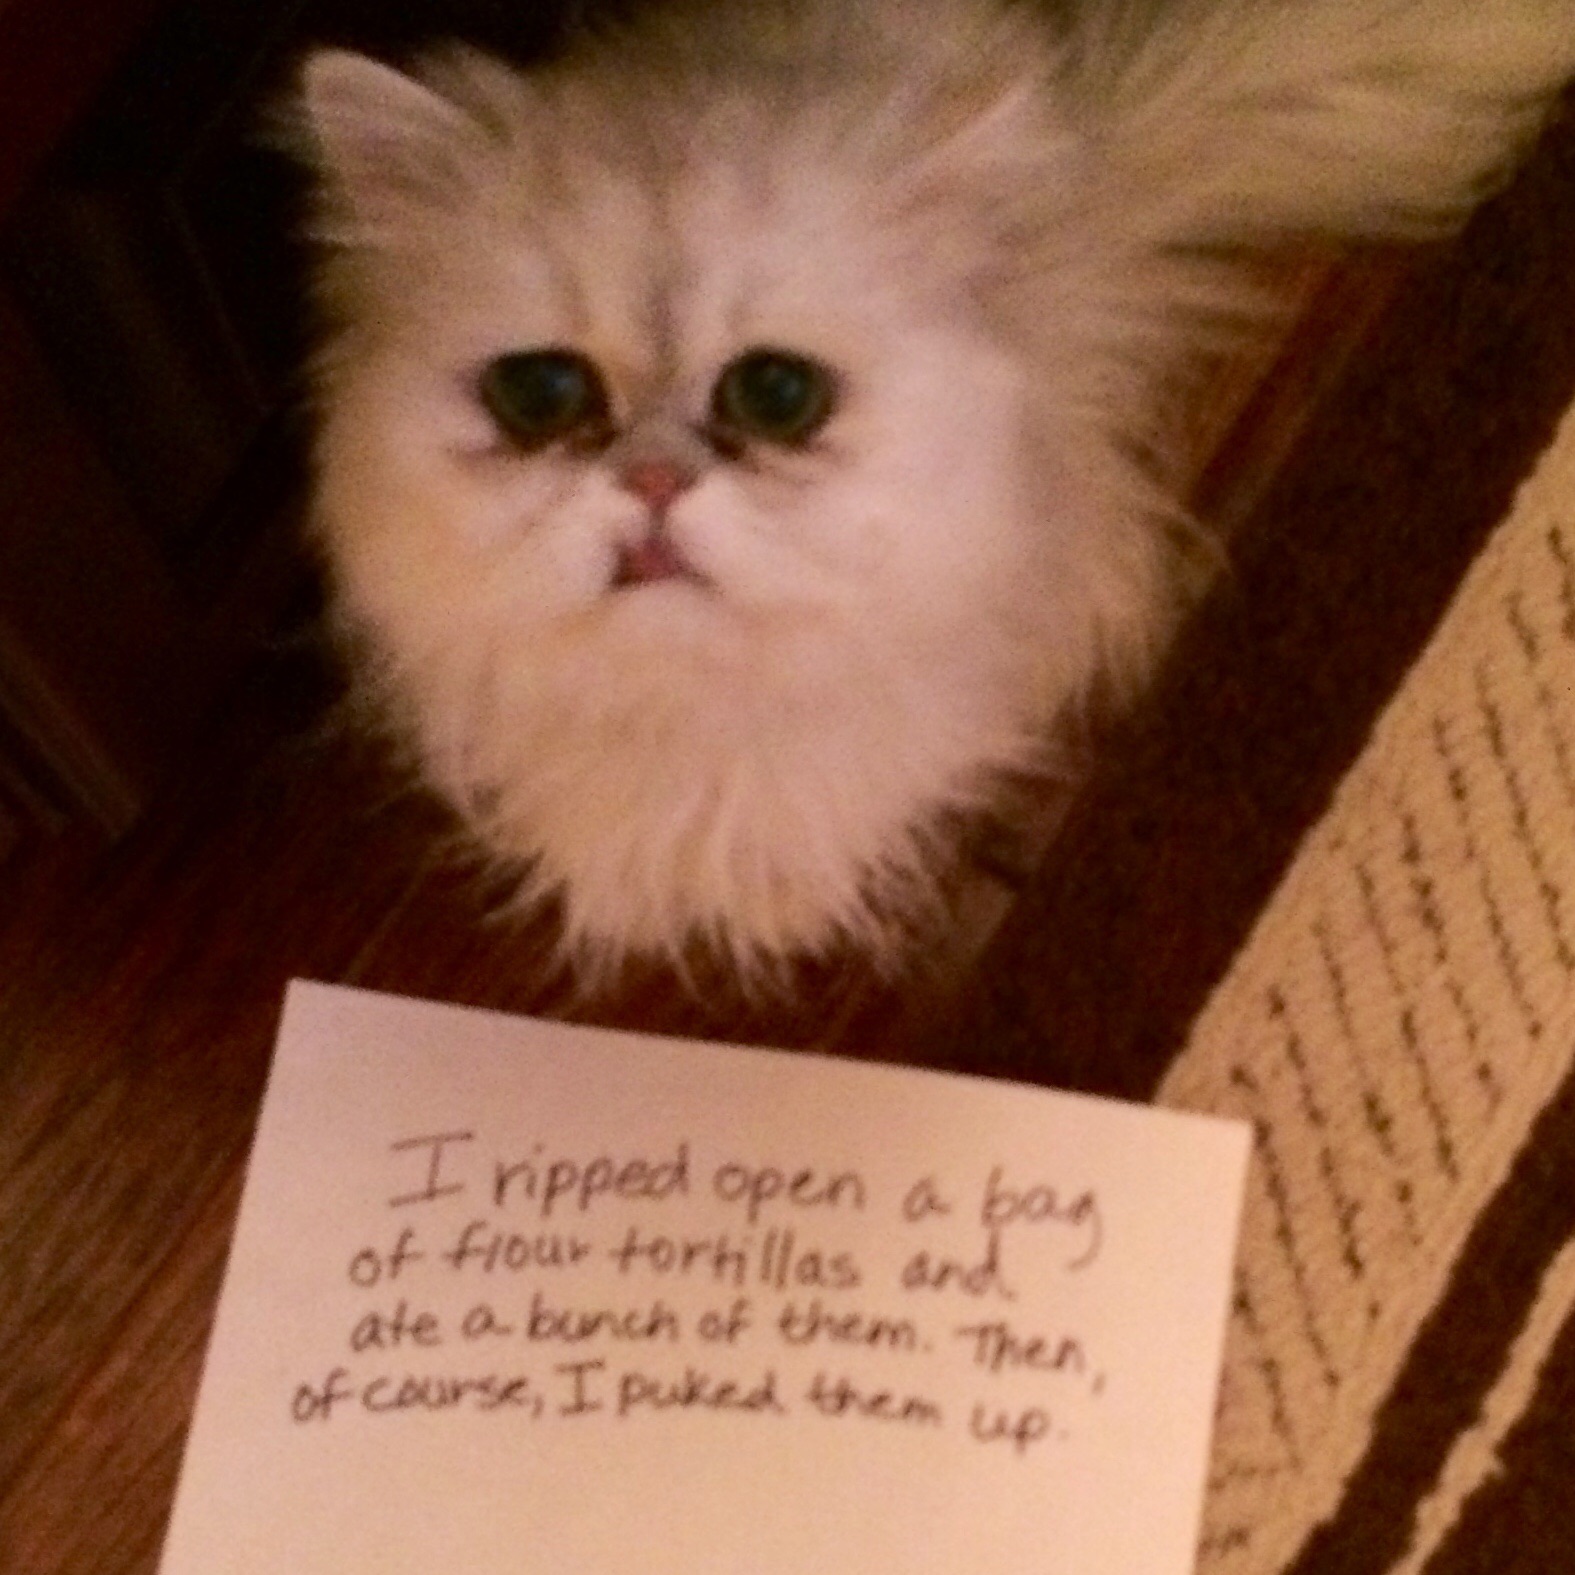 I ripped open a bag
of flour tortillas and
ate a bunch of them. Then,
of course, I puked them up.